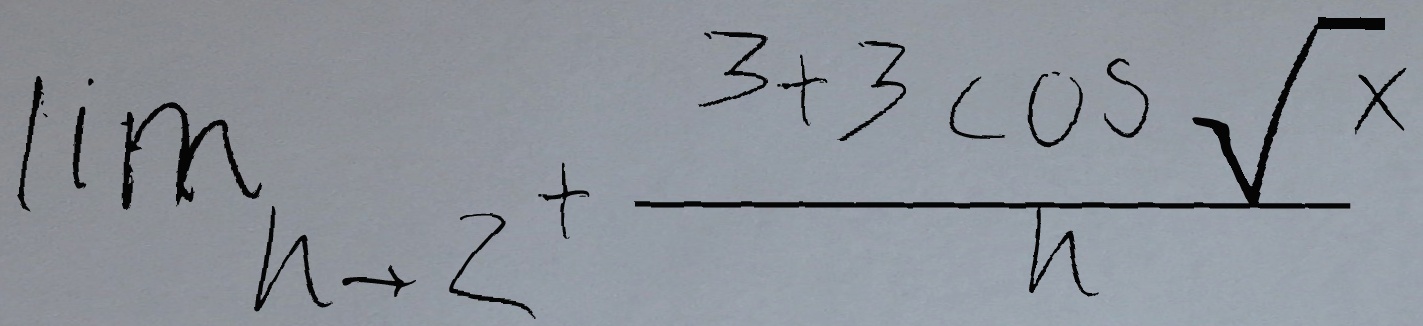 \lim_{h \to 2^+} \frac{3+3\cos\sqrt{x}}{h}